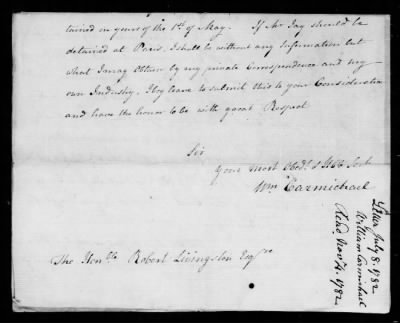 tained in yours of the 1st of May. If Mr Jay should be
detained at Paris, I shall be without any Information but
what I may Obtain by my private Correspondence and my
own Industry. I beg leave to submit this to your Consideration
and have the honor to be with great Respect
Sir
Your Most Obedt & Hble Servt
Wm Carmichael
The Honble Robert Livingston Esqre
Letter July 8. 1782
William Carmichael
Recd Novr 1782